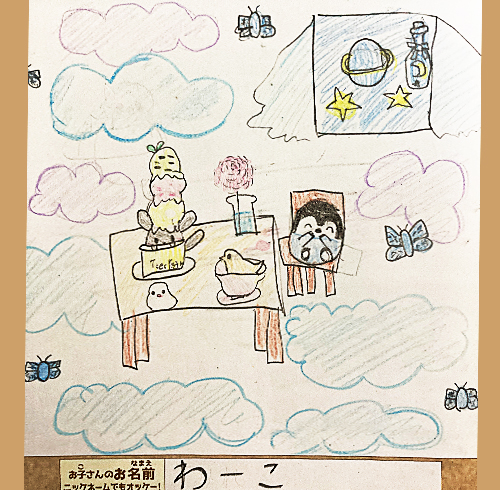 なまえ
お子さんのお名前
ニックネームでもオッケー!
わーこ